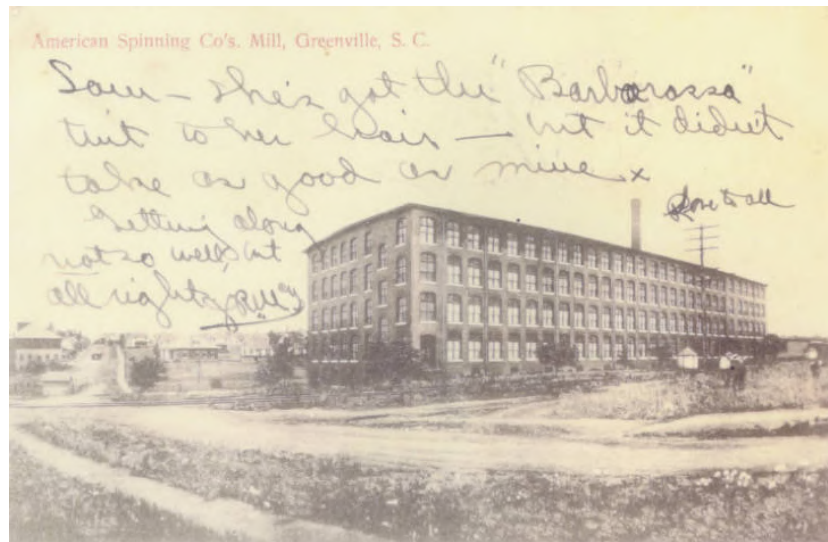 American Spinning Co's. Mill, Greenville, S. C.
Sam — she's got the "Barbarossa"
tint to her hair — but it didn't
take as good as mine x
Love to all
Getting along
not so well, but
all righty